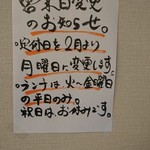 営業日変更
のお知らせ。
定休日を2月より
月曜日に変更します。
ランチは、火〜金曜日
の平日のみ。
祝日は、お休みです。